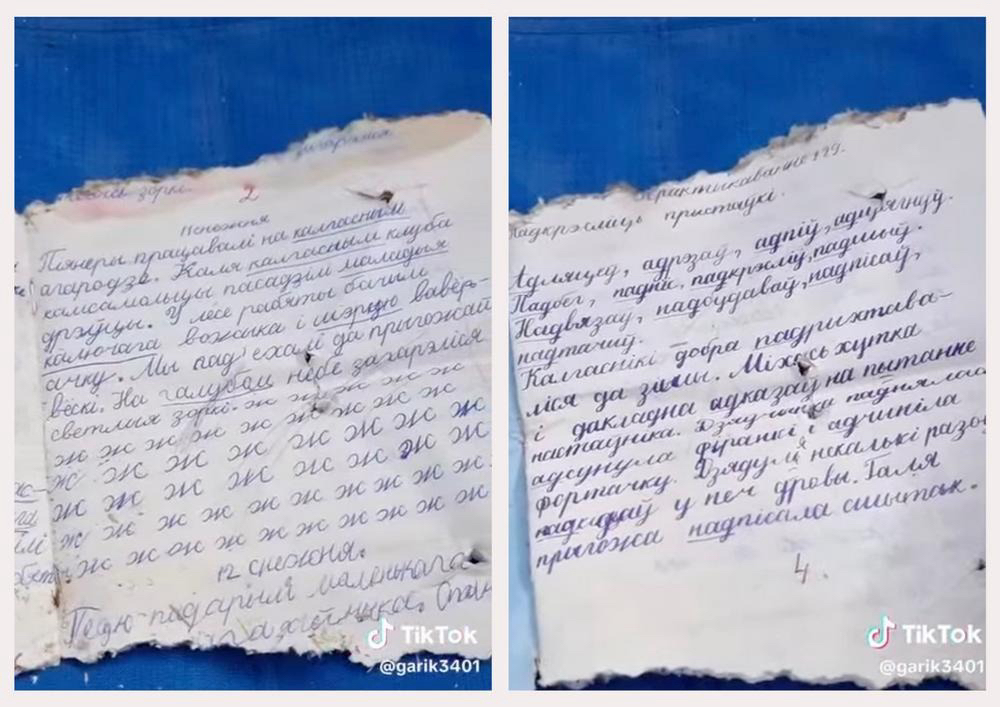 зоркі.
2
Піянеры працавалі на калгасным
агародзе. Каля калгасным клуба
камсамольцы пасадзілі маладыя
дрэўцы. У лесе рабяты бачылі
калючага вожыка і шэрую вавёр-
ачку. Мы пад'ехалі да прыгожай
вёскі. На галубом небе загарэліся
светлыя зоркі. ж ж ж ж ж ж
ж ж ж ж ж ж ж ж
ж ж ж ж ж ж ж
ж ж ж ж ж ж ж
ж ж ж ж ж ж ж ж
ж ж ж ж ж ж ж ж
12 снежня.
Пецю падарылі маленькага
TikTok
@garik3401
Практикаванне 129.
Падкрэсліць прыстаўкі.
Адляцеў, адрэзаў, адпіў, адцягнуў.
Падбег, падпіс, падкрэсліў, падмыў.
Надвязаў, надбудаваў, надпісаў,
надтачыў.
Калгаснікі добра падрыхтава-
ліся да зімы. Міхась хутка
і дакладна адказаў на пытанне
настаўніка. Дзяўчынка паднялася
адсунула фіранкі і адчыніла
фортачку. Дзядуля некалькі разоў
надкідваў у печ дровы. Галя
прыгожа надпісала сшытак.
4.
TikTok
@garik3401